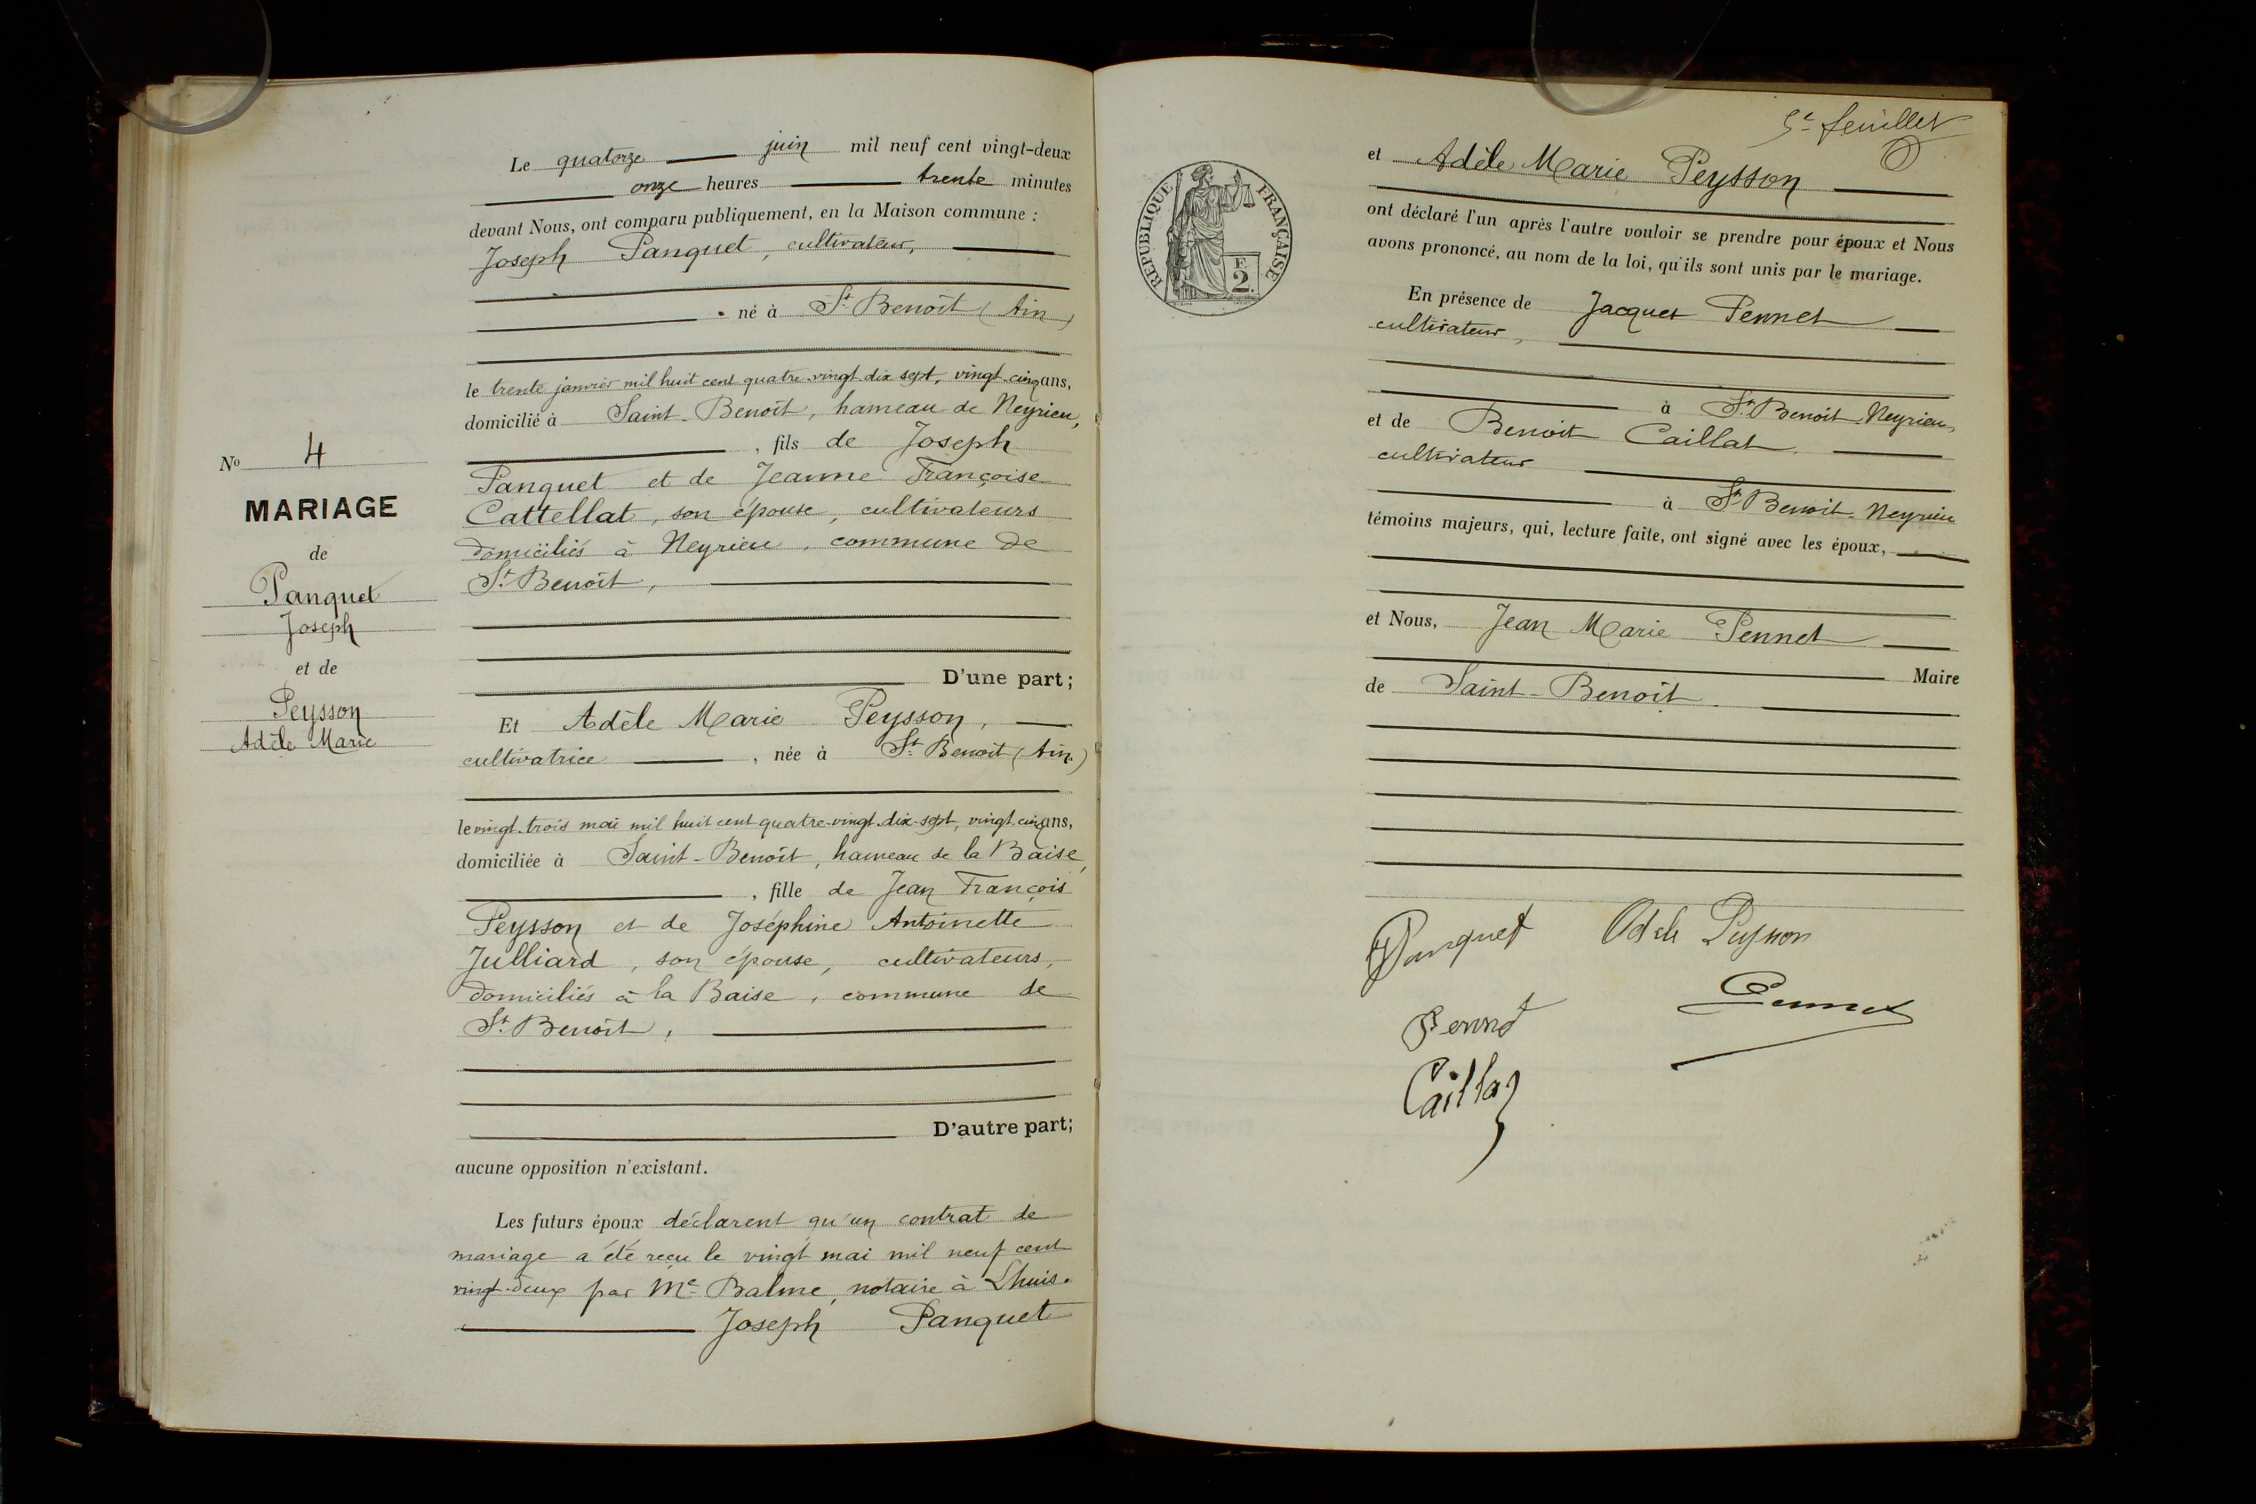 Le quatorze juin mil neuf cent vingt-deux
onze heures trente minutes
devant Nous, ont comparu publiquement, en la Maison commune :
Joseph Panquet, cultivateur,
né à St Benoît (Ain)
le trente janvier mil huit cent quatre-vingt dix sept, vingt-cinq ans,
domicilié à Saint-Benoît, hameau de Neyrieu,
, fils de Joseph
Panquet et de Jeanne Françoise
Cattellat, son épouse, cultivateurs
domiciliés à Neyrieu, commune de
St Benoît,
D'une part;
No 4
MARIAGE
de
Panquet
Joseph
et de
Peysson
Adèle Marie
Et Adèle Marie Peysson,
cultivatrice , née à St Benoît (Ain)
le vingt-trois mai mil huit cent quatre-vingt-dix-sept, vingt-cinq ans,
domiciliée à Saint-Benoît, hameau de la Baise,
, fille de Jean François
Peysson et de Joséphine Antoinette
Julliard, son épouse, cultivateurs,
domiciliés à la Baise, commune de
St Benoît,
D'autre part;
aucune opposition n'existant.
Les futurs époux déclarent qu'un contrat de
mariage a été reçu le vingt mai mil neuf cent
vingt-deux par Me Balme, notaire à Lhuis.
Joseph Panquet
5e feuillet
RÉPUBLIQUE FRANÇAISE
F.
2.
et Adèle Marie Peysson
ont déclaré l'un après l'autre vouloir se prendre pour époux et Nous
avons prononcé, au nom de la loi, qu'ils sont unis par le mariage.
En présence de Jacques Pennet
cultivateur,
à St Benoît-Neyrieu,
et de Benoit Caillat,
cultivateur
à St Benoit-Neyrieu
témoins majeurs, qui, lecture faite, ont signé avec les époux,
et Nous, Jean Marie Pennet
Maire
de Saint-Benoît.
Panquet Adèle Peysson
Pennet
Pennet
Caillat